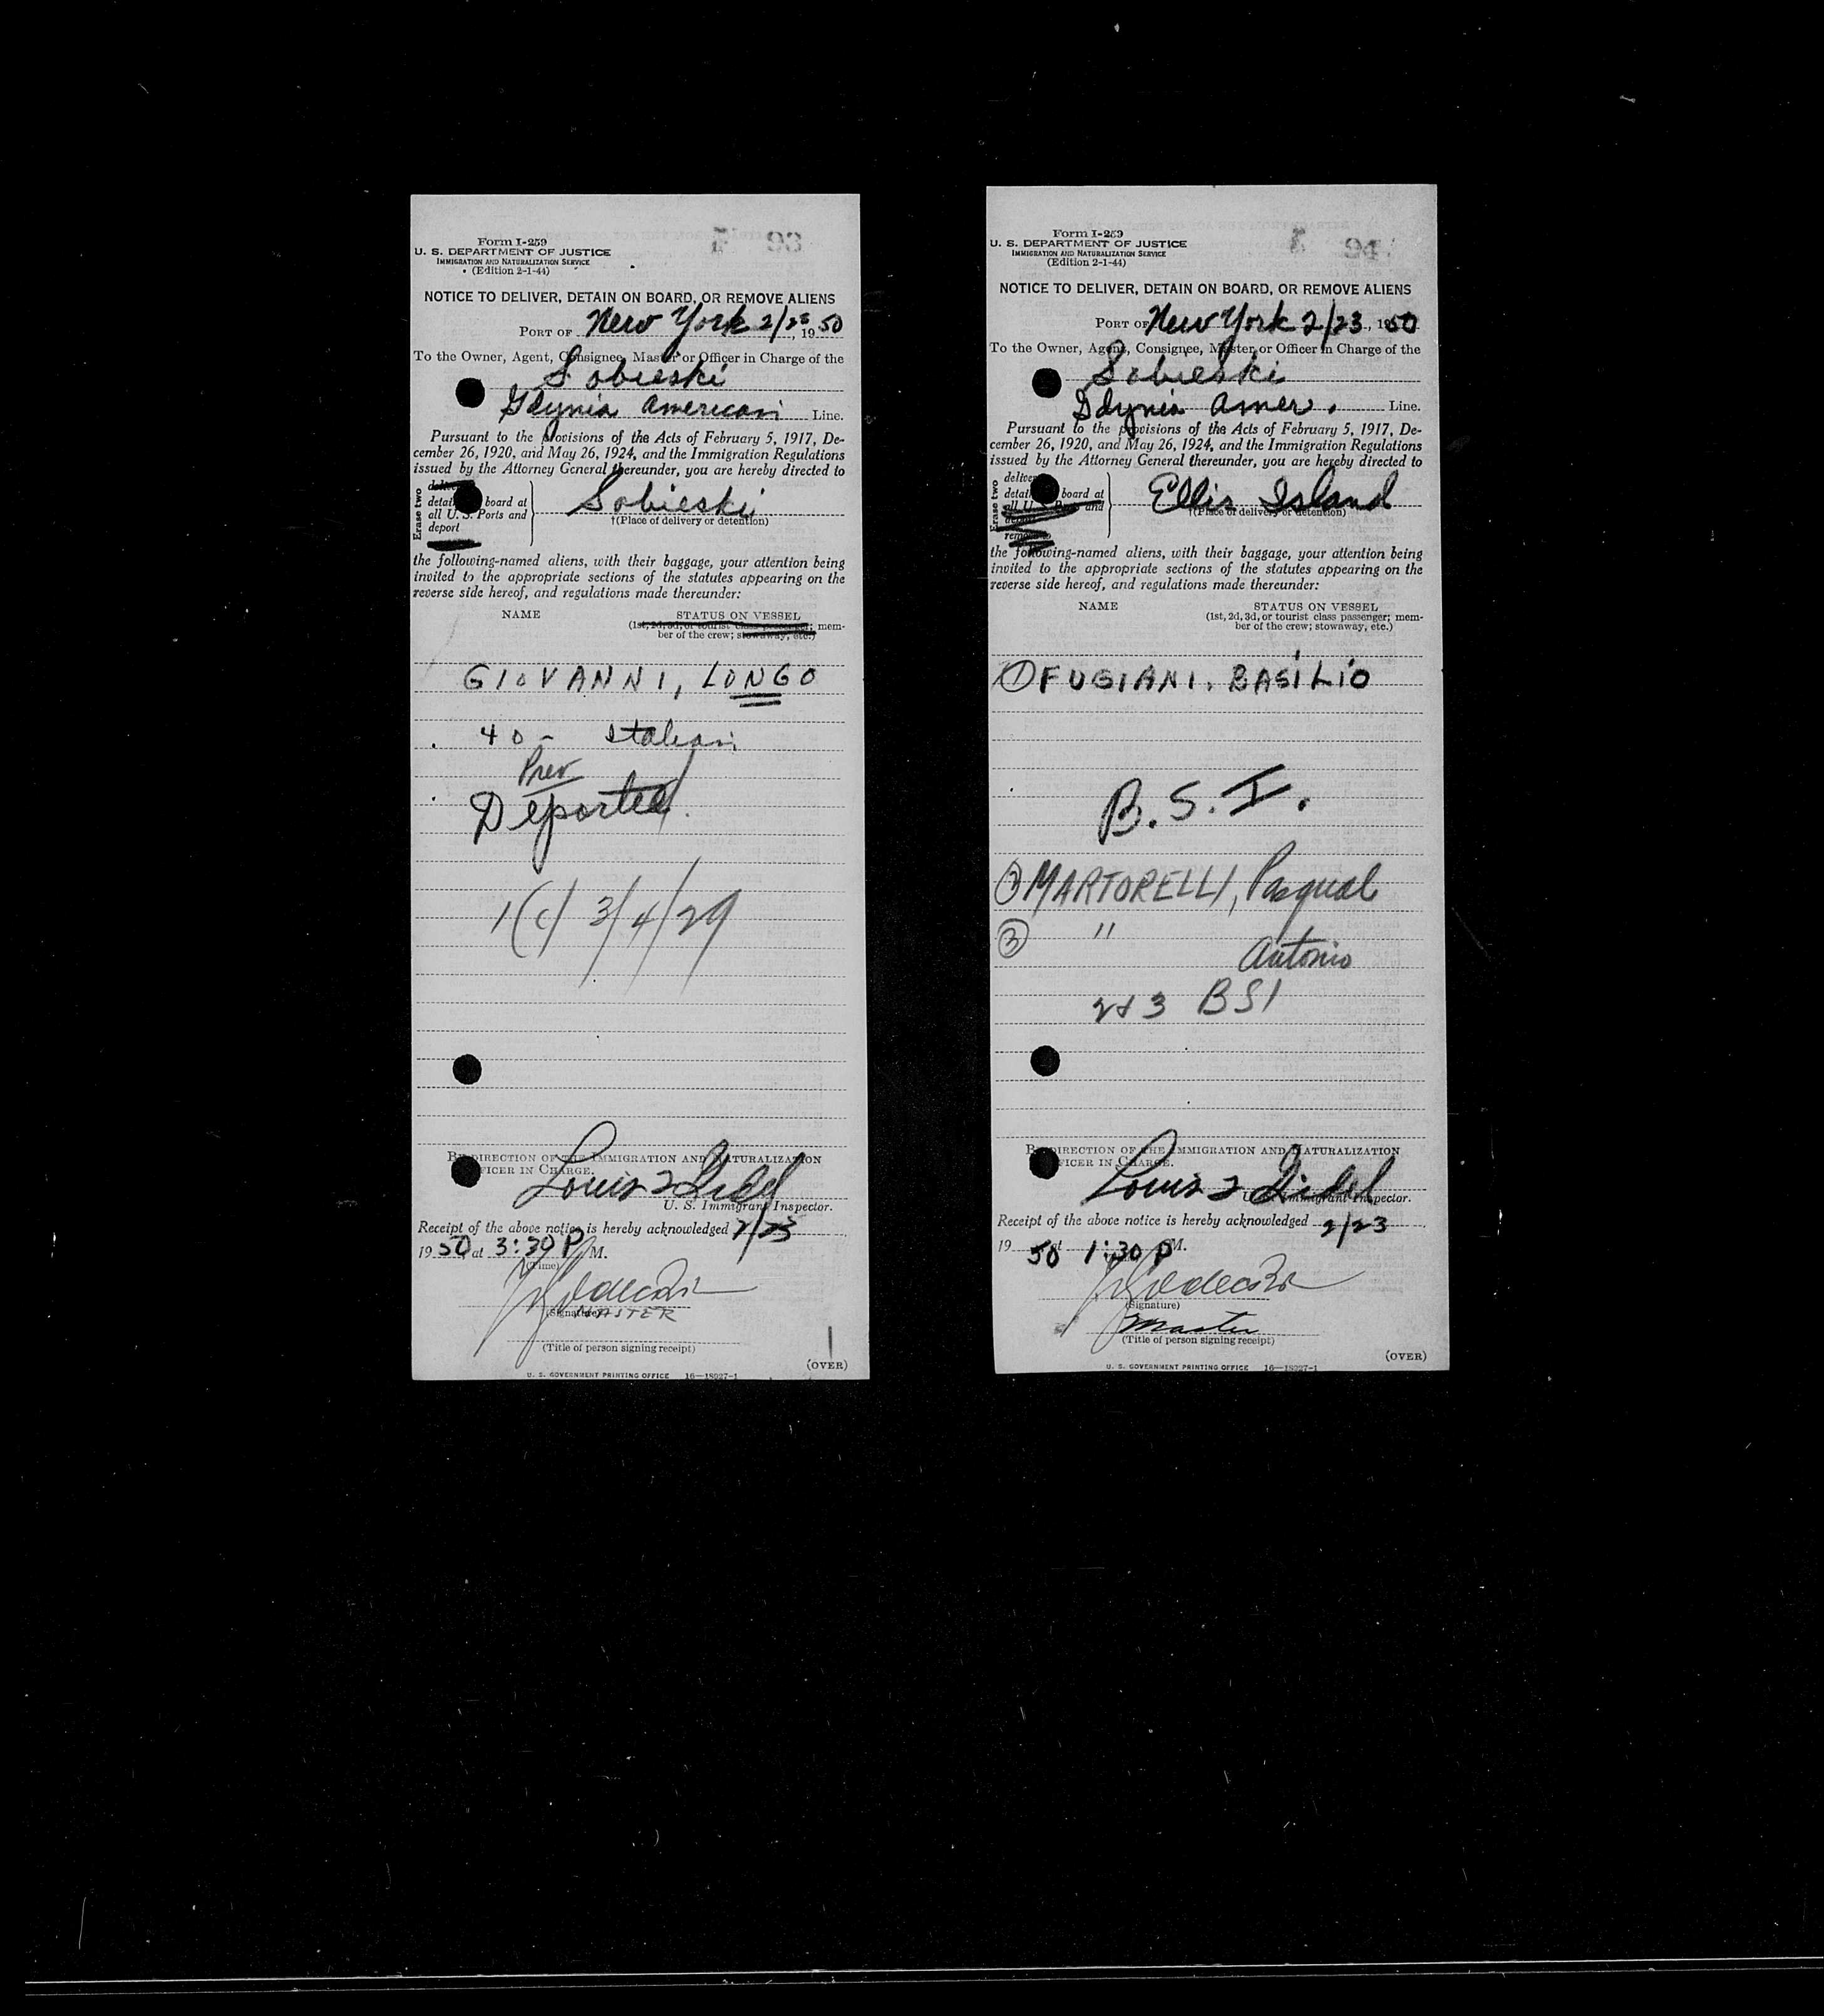 Form I-259
U. S. DEPARTMENT OF JUSTICE
IMMIGRATION AND NATURALIZATION SERVICE
(Edition 2-1-44)
NOTICE TO DELIVER, DETAIN ON BOARD, OR REMOVE ALIENS
PORT OF New York 2/23, 1950
To the Owner, Agent, Consignee, Master or Officer in Charge of the
Sobieski
Gdynia American Line.
Pursuant to the provisions of the Acts of February 5, 1917, De-
cember 26, 1920, and May 26, 1924, and the Immigration Regulations
issued by the Attorney General thereunder, you are hereby directed to
Erase two
deliver
detai board at
all U. S. Ports and
deport
Sobieski
†(Place of delivery or detention)
the following-named aliens, with their baggage, your attention being
invited to the appropriate sections of the statutes appearing on the
reverse side hereof, and regulations made thereunder:
NAME STATUS ON VESSEL
(1st, 2d, 3d, or tourist class passenger; mem-
ber of the crew; stowaway, etc.)
GIOVANNI, LONGO
40 - Italian
Prev
Deported
1(c) 3/4/29
BY DIRECTION OF THE IMMIGRATION AND NATURALIZATION
FICER IN CHARGE.
Louis
U. S. Immigrant Inspector.
Receipt of the above notice is hereby acknowledged 2/23
1950, at 3:30 P M.
(Time)
(Signature)
MASTER
(Title of person signing receipt)
(OVER)
U. S. GOVERNMENT PRINTING OFFICE 16—18027-1
Form I-259
U. S. DEPARTMENT OF JUSTICE
IMMIGRATION AND NATURALIZATION SERVICE
(Edition 2-1-44)
NOTICE TO DELIVER, DETAIN ON BOARD, OR REMOVE ALIENS
PORT OF New York 2/23, 1950
To the Owner, Agent, Consignee, Master or Officer in Charge of the
Sobieski
Gdynia Amer. Line.
Pursuant to the provisions of the Acts of February 5, 1917, De-
cember 26, 1920, and May 26, 1924, and the Immigration Regulations
issued by the Attorney General thereunder, you are hereby directed to
Erase two
deliver
detai board at
all U. S. Ports and
deport
remove
Ellis Island
†(Place of delivery or detention)
the following-named aliens, with their baggage, your attention being
invited to the appropriate sections of the statutes appearing on the
reverse side hereof, and regulations made thereunder:
NAME STATUS ON VESSEL
(1st, 2d, 3d, or tourist class passenger; mem-
ber of the crew; stowaway, etc.)
1 FUGIANI, BASILIO
B.S.I.
2 MARTORELLI, Pasqual
3 " Antonio
2+3 BSI
BY DIRECTION OF THE IMMIGRATION AND NATURALIZATION
FICER IN CHARGE.
Louis
U. S. Immigrant Inspector.
Receipt of the above notice is hereby acknowledged 2/23
1950 at 1:30 P M.
(Signature)
Master
(Title of person signing receipt)
(OVER)
U. S. GOVERNMENT PRINTING OFFICE 16—18027-1